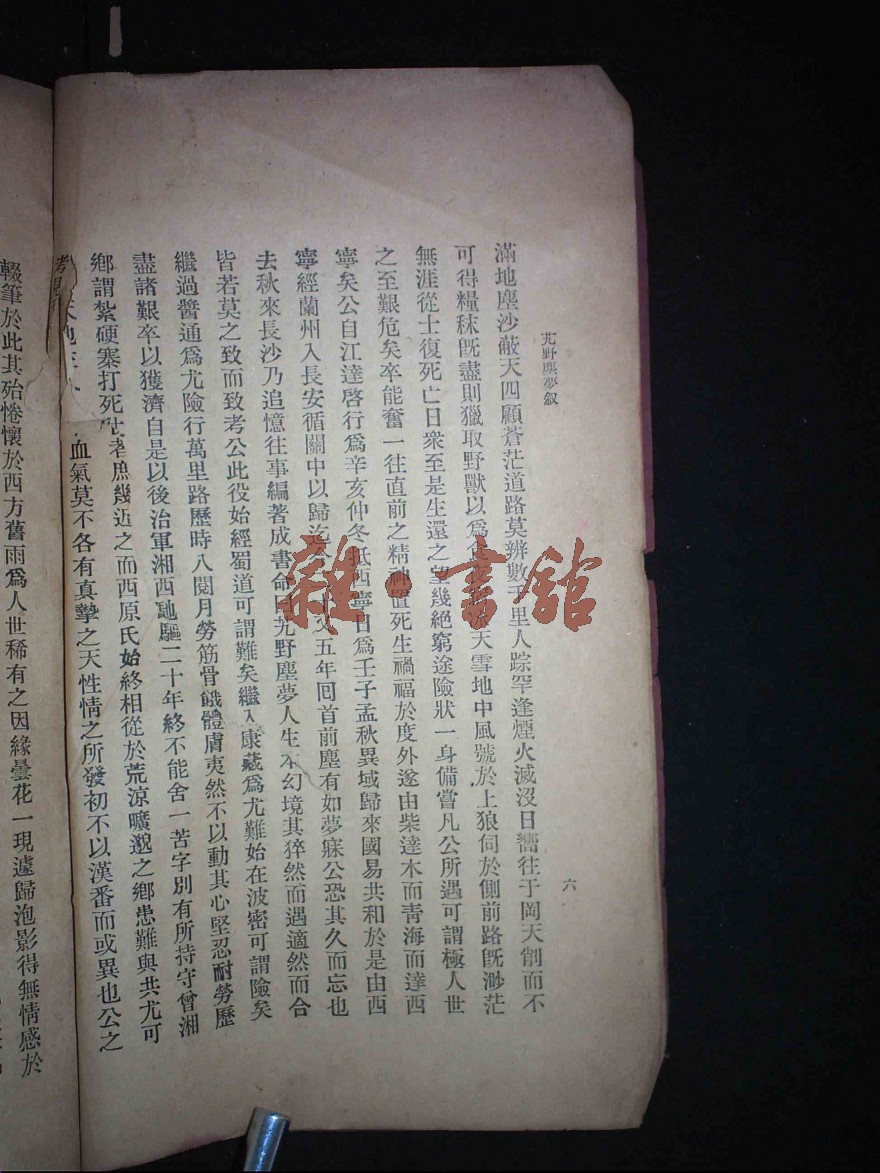 艽野塵夢叙
六
滿地塵沙蔽天四顧蒼茫道路莫辨數千里人踪罕逢煙火滅沒日嚮往于岡天削而不
可得糧秣旣盡則獵取野獸以爲食天雪地中風號於上狼伺於側前路旣渺茫
無涯從士復死亡日衆至是生還之望幾絕窮途險狀一身備嘗凡公所遇可謂極人世
之至艱危矣卒能奮一往直前之精神置死生禍福於度外遂由柴達木而靑海而達西
寧矣公自江達啓行爲辛亥仲冬抵西寧日爲壬子孟秋異域歸來國易共和於是由西
寧經蘭州入長安循關中以歸迄今又五年回首前塵有如夢寐公恐其久而忘也
去秋來長沙乃追憶往事編著成書命曰艽野塵夢人生本幻境其猝然而遇適然而合
皆若莫之致而致考公此役始經蜀道可謂難矣繼入康藏爲尤難始在波密可謂險矣
繼過醬通爲尤險行萬里路歷時八閱月勞筋骨餓體膚夷然不以動其心堅忍耐勞歷
盡諸艱卒以獲濟自是以後治軍湘西馳驅二十年終不能舍一苦字別有所持守曾湘
鄕謂紮硬寨打死者庶幾近之而西原氏始終相從於荒涼曠邈之鄕患難與共尤可
血氣莫不各有真摯之天性情之所發初不以漢番而或異也公之
輟筆於此其殆惓懷於西方舊雨爲人世稀有之因緣曇花一現遽歸泡影得無情感於
雜·書舘